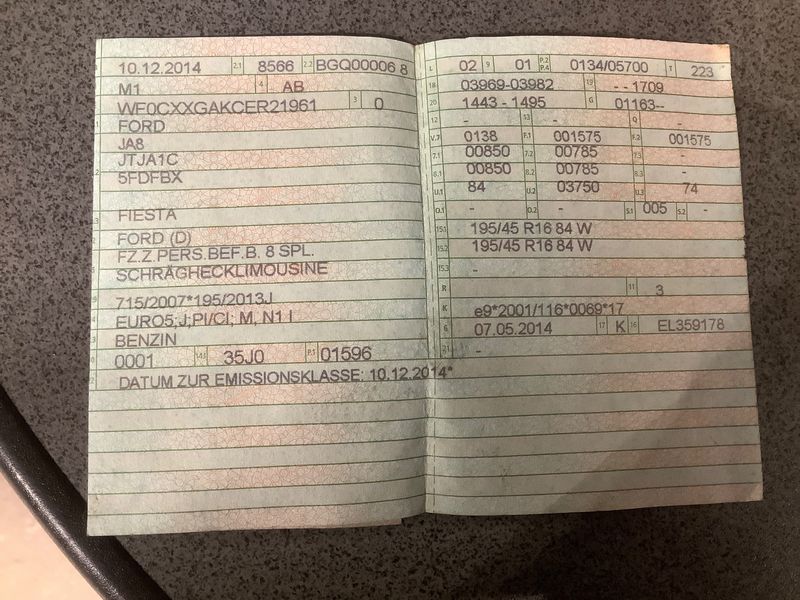 10.12.2014 2.1 8566 2.2 BGQ00006 8
M1 4 AB
WF0CXXGAKCER21961 3 0
FORD
JA8
JTJA1C
5FDFBX
FIESTA
FORD (D)
FZ.Z.PERS.BEF.B. 8 SPL.
SCHRÄGHECKLIMOUSINE
715/2007*195/2013J
EURO5;J;PI/CI; M, N1 I
BENZIN
0001 14.1 35J0 P.1 01596
DATUM ZUR EMISSIONSKLASSE: 10.12.2014*
L 02 9 01 P.2 P.4 0134/05700 T 223
18 03969-03982 19 - - 1709
20 1443 - 1495 G 01163--
12 - 13 - Q -
V.7 0138 F.1 001575 F.2 001575
7.1 00850 7.2 00785 7.3 -
8.1 00850 8.2 00785 8.3 -
U.1 84 U.2 03750 U.3 74
O.1 - O.2 - S.1 005 S.2 -
15.1 195/45 R16 84 W
15.2 195/45 R16 84 W
15.3 -
R 11 3
K e9*2001/116*0069*17
6 07.05.2014 17 K 16 EL359178
21 -